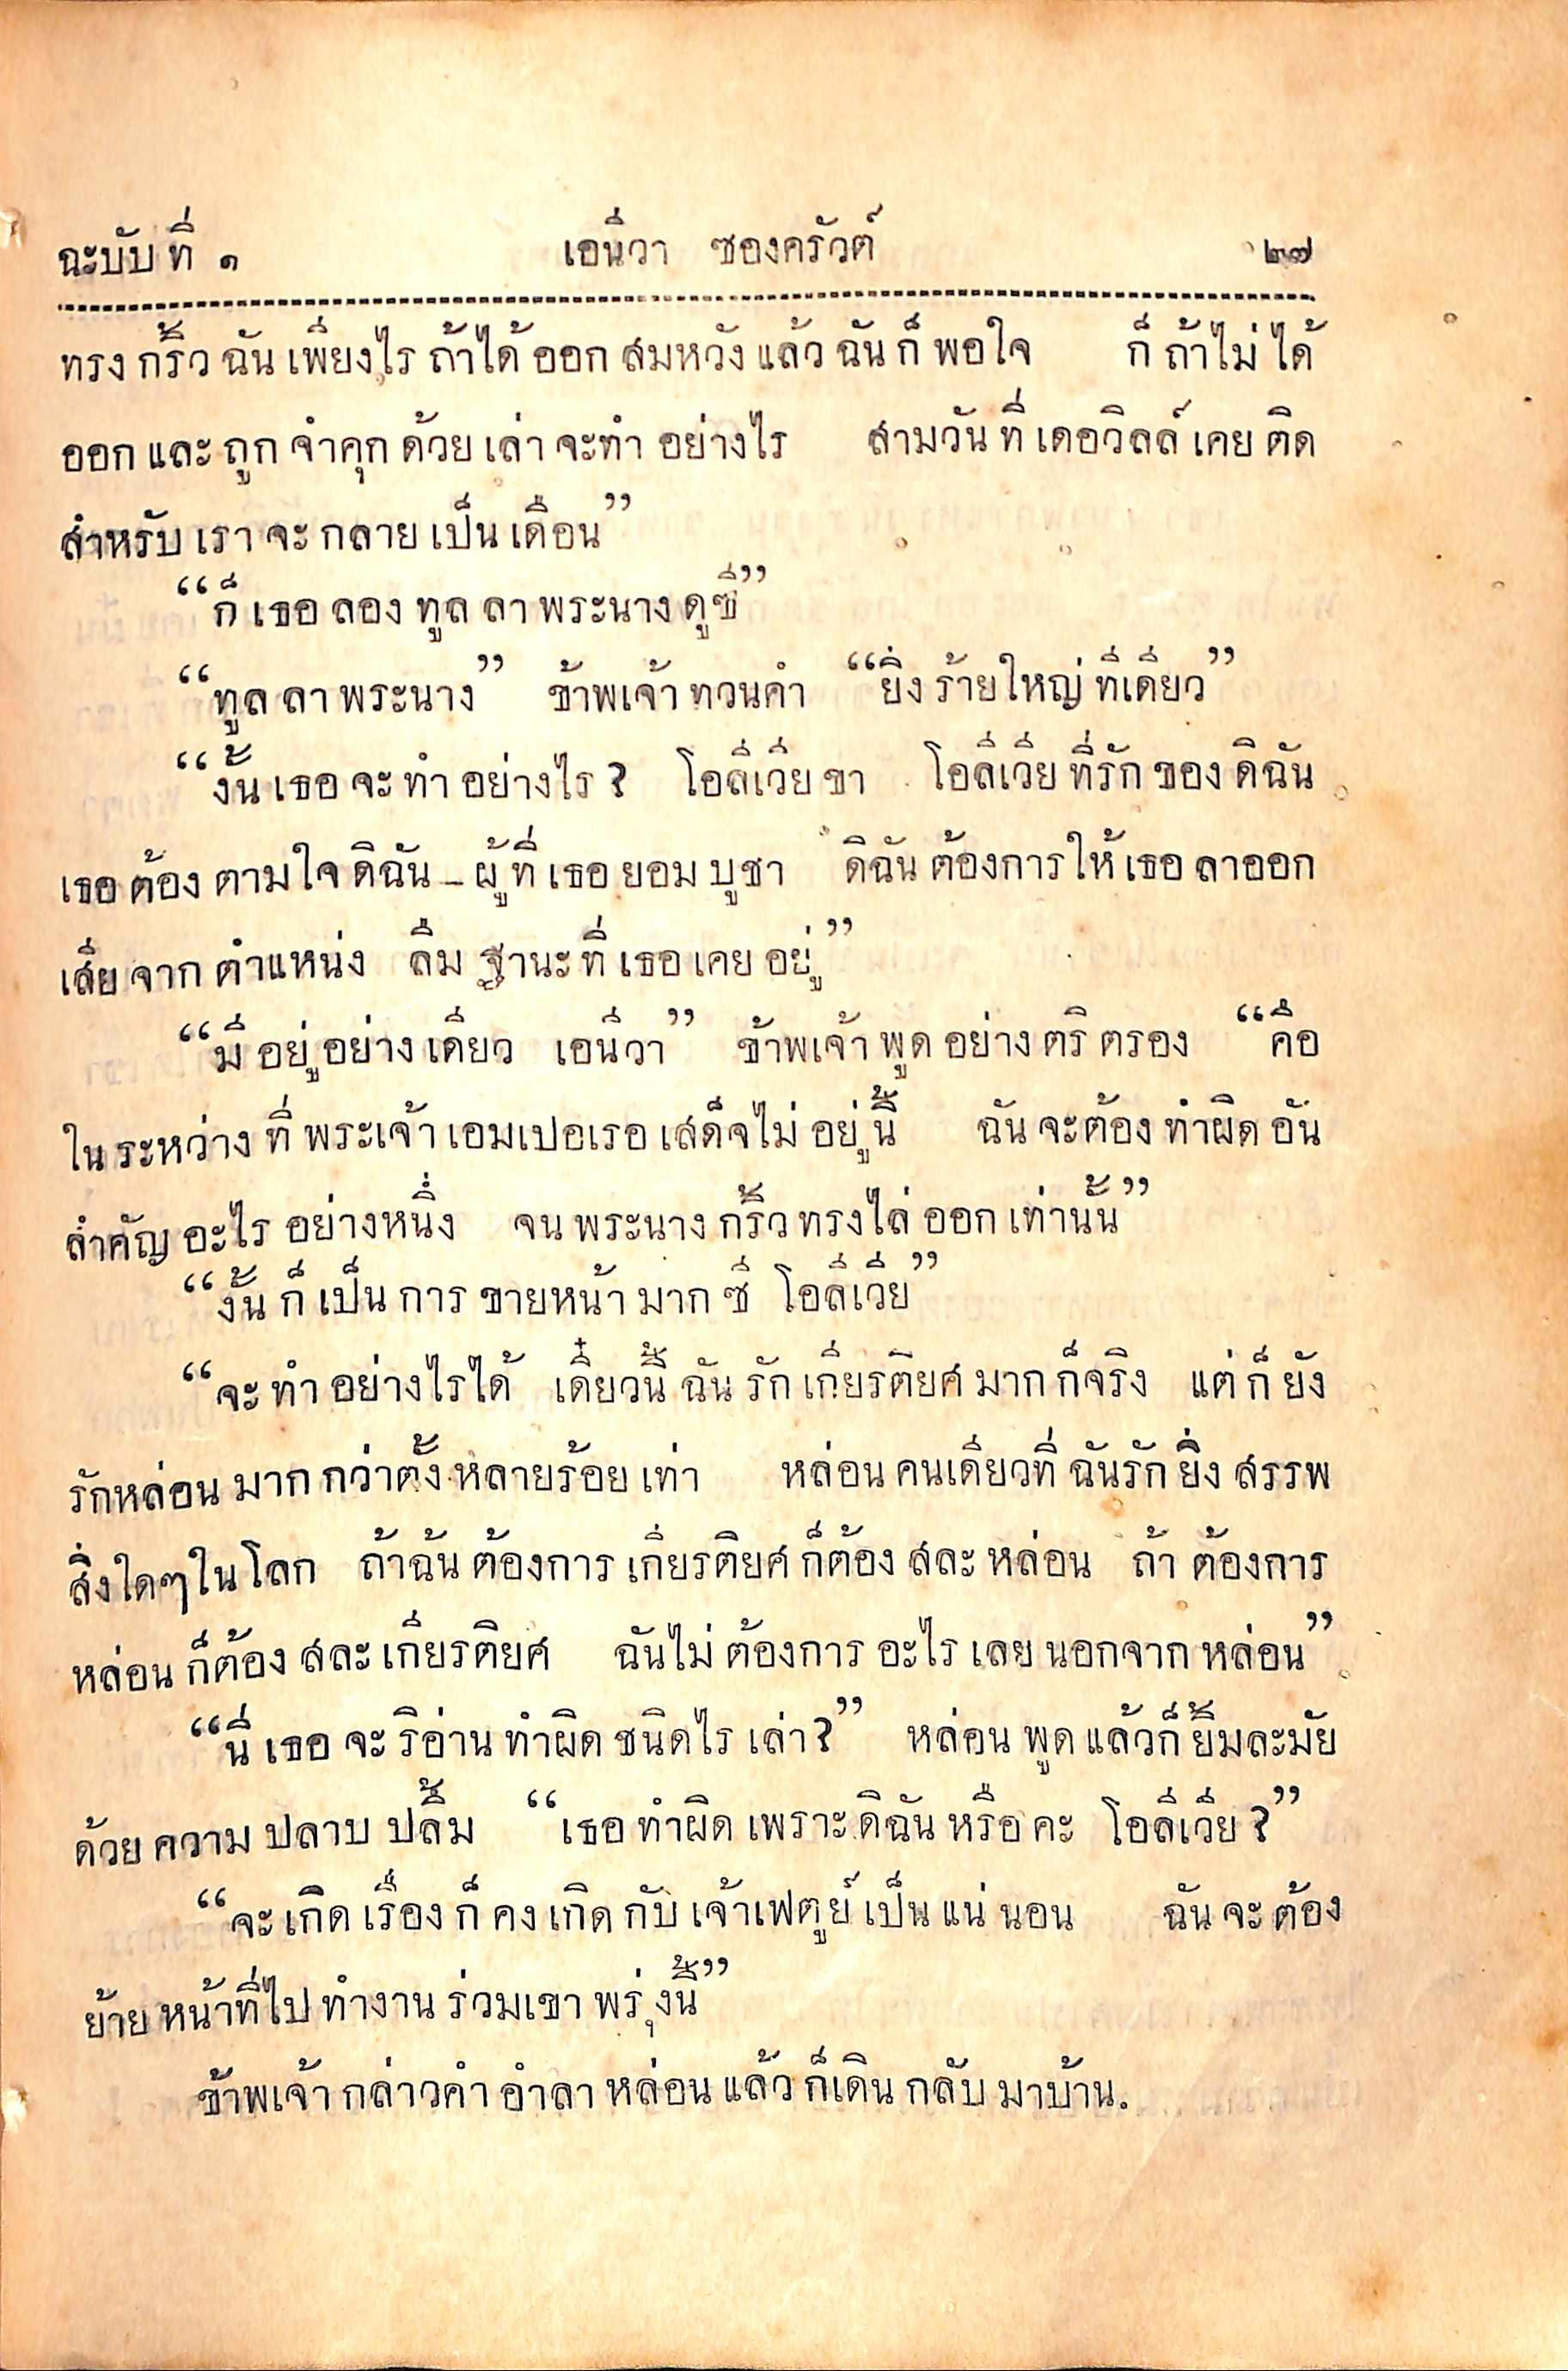 ฉะบับที่ ๑ เอนีวา ซองครัวต์ ๒๗
ทรงกริ้วฉันเพียงไร ถ้าได้ออกสมหวังแล้วฉันก็พอใจ ก็ถ้าไม่ได้
ออกและถูกจำคุกด้วยเล่าจะทำอย่างไร สามวันที่เดอวิลล์เคยติด
สำหรับเราจะกลายเป็นเดือน”
“ก็เธอลองทูลลาพระนางดูซี”
“ทูลลาพระนาง” ข้าพเจ้าทวนคำ “ยิ่งร้ายใหญ่ทีเดียว”
“งั้นเธอจะทำอย่างไร? โอลีเวียขา โอลีเวียที่รักของดิฉัน
เธอต้องตามใจดิฉัน—ผู้ที่เธอยอมบูชา ดิฉันต้องการให้เธอลาออก
เสียจากตำแหน่ง ลืมฐานะที่เธอเคยอยู่”
“มีอยู่อย่างเดียว เอนีวา” ข้าพเจ้าพูดอย่างตริตรอง “คือ
ในระหว่างที่พระเจ้าเอมเปอเรอเสด็จไม่อยู่นี้ ฉันจะต้องทำผิดอัน
สำคัญอะไรอย่างหนึ่ง จนพระนางกริ้วทรงไล่ออกเท่านั้น”
“งั้นก็เป็นการขายหน้ามากซี โอลีเวีย”
“จะทำอย่างไรได้ เดี๋ยวนี้ฉันรักเกียรติยศมากก็จริง แต่ก็ยัง
รักหล่อนมากกว่าตั้งหลายร้อยเท่า หล่อนคนเดียวที่ฉันรักยิ่งสรรพ
สิ่งใดๆในโลก ถ้าฉันต้องการเกียรติยศก็ต้องสละหล่อน ถ้าต้องการ
หล่อนก็ต้องสละเกียรติยศ ฉันไม่ต้องการอะไรเลยนอกจากหล่อน”
“นี่เธอจะริอ่านทำผิดชนิดไรเล่า?” หล่อนพูดแล้วก็ยิ้มละมัย
ด้วยความปลาบปลื้ม “เธอทำผิดเพราะดิฉันหรือคะ โอลีเวีย?”
“จะเกิดเรื่องก็คงเกิดกับเจ้าเฟตูย์เป็นแน่นอน ฉันจะต้อง
ย้ายหน้าที่ไปทำงานร่วมเขาพรุ่งนี้”
ข้าพเจ้ากล่าวคำอำลาหล่อนแล้วก็เดินกลับมาบ้าน.